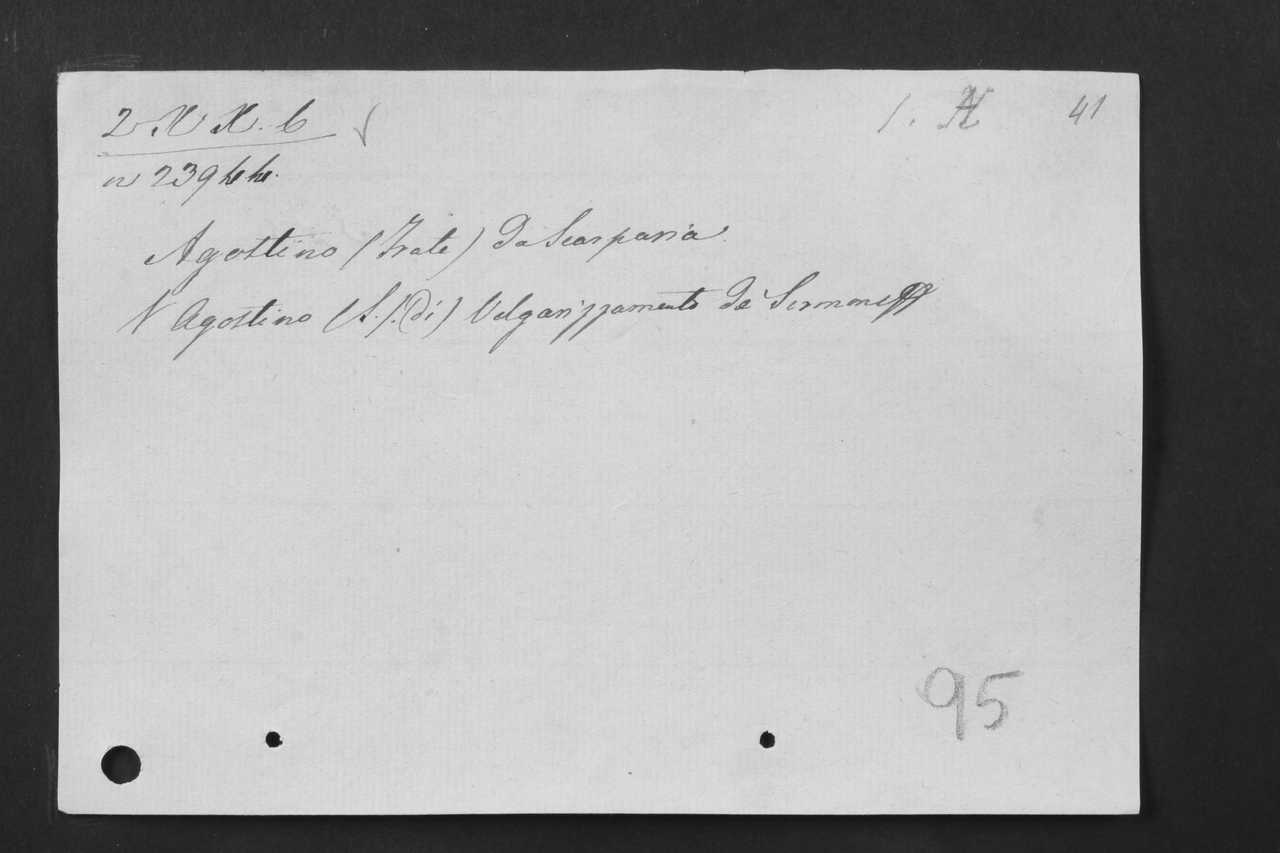 2. X. X. 6
1. A 41
n 239
Agostino (Frate) da Scarparia.
V Agostino (S.) (di) Volgarizzamento de' Sermoni
95